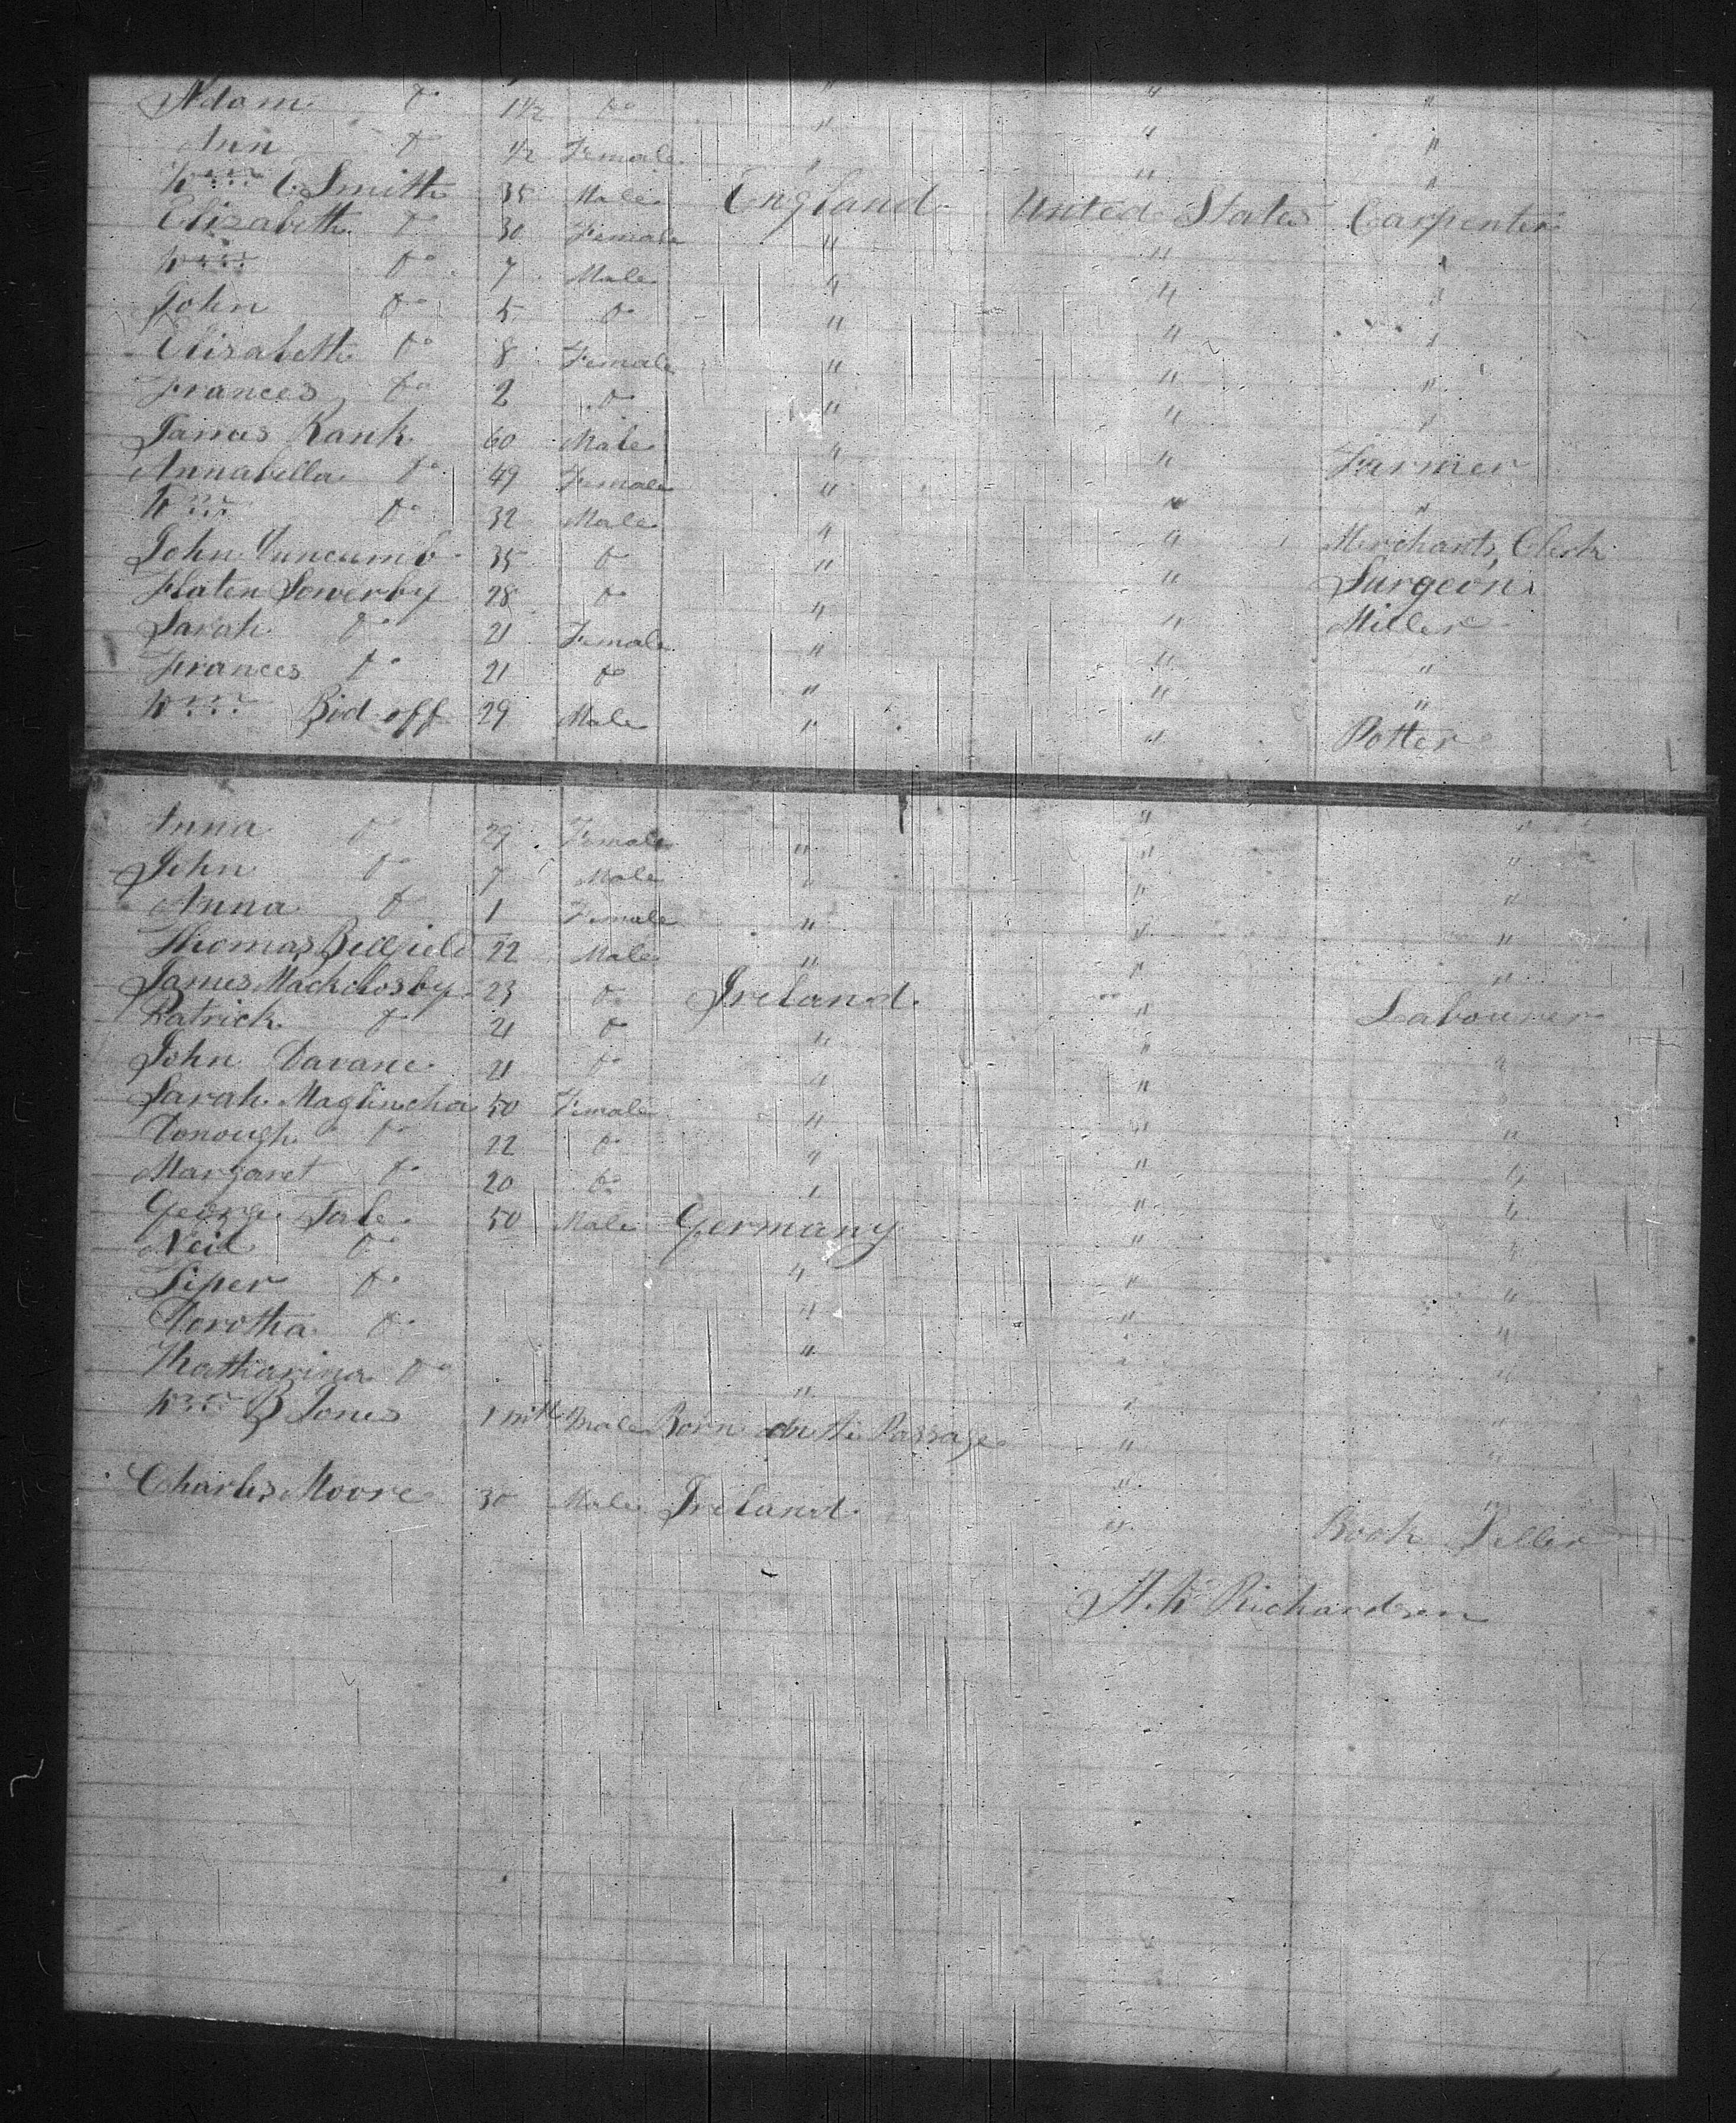 Adam do 1½ do " " "
Ann do ½ Female " " "
Wm C. Smith 35 Male England United States Carpenter
Elizabeth do 30 Female " " "
Wm do 7 Male " " "
John do 5 do " " "
Elizabeth do 8 Female " " "
Frances do 2 do " " "
James Rank 60 Male " " Farmer
Annabella do 49 Female " " "
Wm do 32 Male " " Merchants Clerk
John Vuncumb 35 do " " Surgeon
Sowerby 28 do " " Miller
Sarah do 21 Female " " "
Frances do 21 do " " "
Wm Bid off 29 Male " " Potter
Anna do 29 Female " " "
John do 7 Male " " "
Anna do 1 Female " " "
Thomas Bellfield 22 Male " " "
James Mackclosby 23 do Ireland " Labourer
Patrick do 21 do " " "
John Davane 21 do " " "
Sarah Maglincha 50 Female " " "
Donough do 22 do " " "
Margaret do 20 do " " "
George Sale 50 Male Germany " "
Neil do " " "
Siper do " " "
Dorotha do " " "
Katharina do " " "
Wm B Jones 1 mth Male Born on the Passage " "
Charles Moore 30 Male Ireland " Book Seller
Richardson